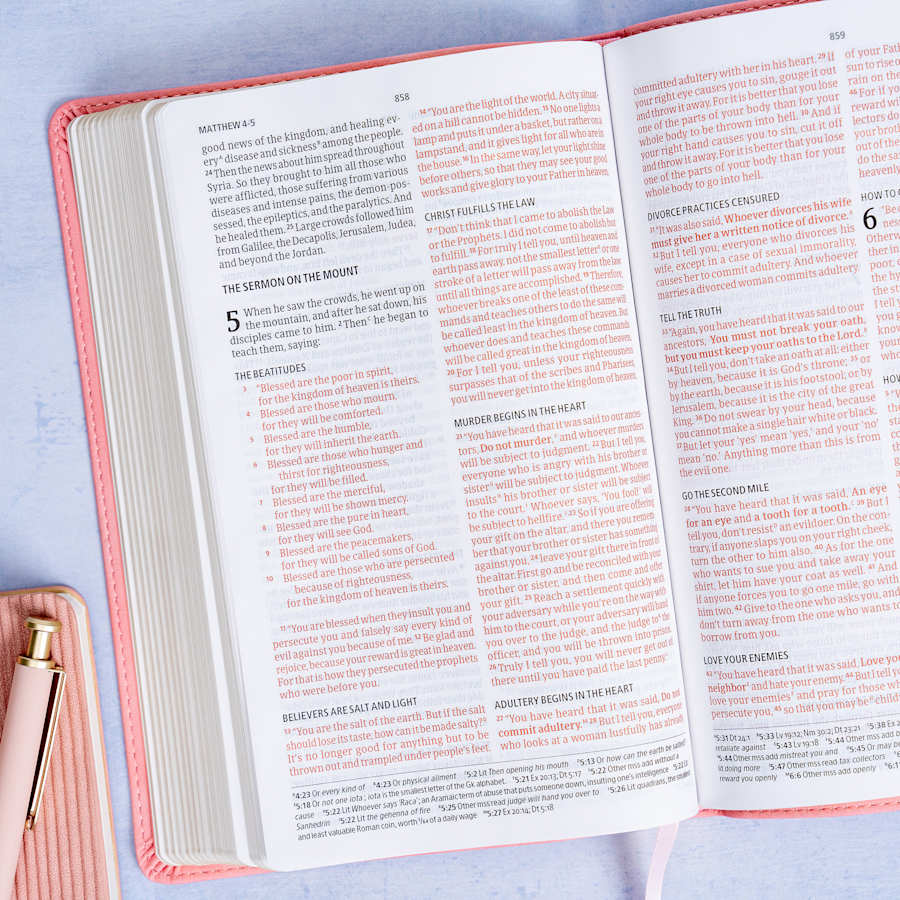 MATTHEW 4–5
858
good news of the kingdom, and healing ev-
ery^A disease and sickness^B among the people.
24 Then the news about him spread throughout
Syria. So they brought to him all those who
were afflicted, those suffering from various
diseases and intense pains, the demon-pos-
sessed, the epileptics, and the paralytics. And
he healed them. 25 Large crowds followed him
from Galilee, the Decapolis, Jerusalem, Judea,
and beyond the Jordan.
THE SERMON ON THE MOUNT
5 When he saw the crowds, he went up on
the mountain, and after he sat down, his
disciples came to him. 2 Then^C he began to
teach them, saying:
THE BEATITUDES
3 “Blessed are the poor in spirit,
for the kingdom of heaven is theirs.
4 Blessed are those who mourn,
for they will be comforted.
5 Blessed are the humble,
for they will inherit the earth.
6 Blessed are those who hunger and
thirst for righteousness,
for they will be filled.
7 Blessed are the merciful,
for they will be shown mercy.
8 Blessed are the pure in heart,
for they will see God.
9 Blessed are the peacemakers,
for they will be called sons of God.
10 Blessed are those who are persecuted
because of righteousness,
for the kingdom of heaven is theirs.
11 “You are blessed when they insult you and
persecute you and falsely say every kind of
evil against you because of me. 12 Be glad and
rejoice, because your reward is great in heaven.
For that is how they persecuted the prophets
who were before you.
BELIEVERS ARE SALT AND LIGHT
13 “You are the salt of the earth. But if the salt
should lose its taste, how can it be made salty?
It’s no longer good for anything but to be
thrown out and trampled under people’s feet.
14 “You are the light of the world. A city situat-
ed on a hill cannot be hidden. 15 No one lights a
lamp and puts it under a basket, but rather on a
lampstand, and it gives light for all who are in
the house. 16 In the same way, let your light shine
before others, so that they may see your good
works and give glory to your Father in heaven.
CHRIST FULFILLS THE LAW
17 “Don’t think that I came to abolish the Law
or the Prophets. I did not come to abolish but
to fulfill. 18 For truly I tell you, until heaven and
earth pass away, not the smallest letter or one
stroke of a letter will pass away from the law
until all things are accomplished. 19 Therefore,
whoever breaks one of the least of these com-
mands and teaches others to do the same will
be called least in the kingdom of heaven. But
whoever does and teaches these commands
will be called great in the kingdom of heaven.
20 For I tell you, unless your righteousness
surpasses that of the scribes and Pharisees,
you will never get into the kingdom of heaven.
MURDER BEGINS IN THE HEART
21 “You have heard that it was said to our ances-
tors, Do not murder, and whoever murders
will be subject to judgment. 22 But I tell you,
everyone who is angry with his brother or
sister will be subject to judgment. Whoever
insults his brother or sister will be subject
to the court. Whoever says, ‘You fool!’ will
be subject to hellfire. 23 So if you are offering
your gift on the altar, and there you remem-
ber that your brother or sister has something
against you, 24 leave your gift there in front of
the altar. First go and be reconciled with your
brother or sister, and then come and offer
your gift. 25 Reach a settlement quickly with
your adversary while you’re on the way with
him to the court, or your adversary will hand
you over to the judge, and the judge to the
officer, and you will be thrown into prison.
26 Truly I tell you, you will never get out of
there until you have paid the last penny.
ADULTERY BEGINS IN THE HEART
27 “You have heard that it was said, Do not
commit adultery. 28 But I tell you, everyone
who looks at a woman lustfully has already
4:23 Or every kind of 4:23 Or physical ailment 5:2 Lit Then opening his mouth 5:13 Or how can the earth be salted
5:18 Or not one iota; iota is the smallest letter of the Gk alphabet. 5:21 Ex 20:13; Dt 5:17 5:22 Other mss add without a
cause 5:22 Lit Whoever says ‘Raca’; an Aramaic term of abuse that puts someone down, insulting one’s intelligence 5:22 Lit
Sanhedrin 5:22 Lit the gehenna of fire 5:25 Other mss read judge will hand you over to 5:26 Lit quadrans, the smallest
and least valuable Roman coin, worth 1/64 of a daily wage 5:27 Ex 20:14; Dt 5:18
859
committed adultery with her in his heart. 29 If
your right eye causes you to sin, gouge it out
and throw it away. For it is better that you lose
one of the parts of your body than for your
whole body to be thrown into hell. 30 And if
your right hand causes you to sin, cut it off
and throw it away. For it is better that you lose
one of the parts of your body than for your
whole body to go into hell.
DIVORCE PRACTICES CENSURED
31 “It was also said, Whoever divorces his wife
must give her a written notice of divorce.
32 But I tell you, everyone who divorces his
wife, except in a case of sexual immorality,
causes her to commit adultery. And whoever
marries a divorced woman commits adultery.
TELL THE TRUTH
33 “Again, you have heard that it was said to our
ancestors, You must not break your oath,
but you must keep your oaths to the Lord.
34 But I tell you, don’t take an oath at all: either
by heaven, because it is God’s throne; 35 or
by the earth, because it is his footstool; or by
Jerusalem, because it is the city of the great
King. 36 Do not swear by your head, because
you cannot make a single hair white or black.
37 But let your ‘yes’ mean ‘yes,’ and your ‘no’
mean ‘no.’ Anything more than this is from
the evil one.
GO THE SECOND MILE
38 “You have heard that it was said, An eye
for an eye and a tooth for a tooth. 39 But I
tell you, don’t resist an evildoer. On the con-
trary, if anyone slaps you on your right cheek,
turn the other to him also. 40 As for the one
who wants to sue you and take away your
shirt, let him have your coat as well. 41 And
if anyone forces you to go one mile, go with
him two. 42 Give to the one who asks you, and
don’t turn away from the one who wants to
borrow from you.
LOVE YOUR ENEMIES
43 “You have heard that it was said, Love your
neighbor and hate your enemy. 44 But I tell you,
love your enemies and pray for those who
persecute you, 45 so that you may be child
of your Fath
sun to rise o
rain on the
46 For if you
reward wil
lectors do
your broth
out of the
do the sam
heavenly
HOW TO G
6 “Be
Otherw
5:31 Dt 24:1 5:33 Lv 19:12; Nm 30:2; Dt 23:21 5:38 Ex 2
retaliate against 5:43 Lv 19:18 5:44 Other mss add b
5:44 Other mss add mistreat you and 5:45 Or may be
it doing more 5:47 Other mss read tax collectors
reward you openly 6:6 Other mss add openly